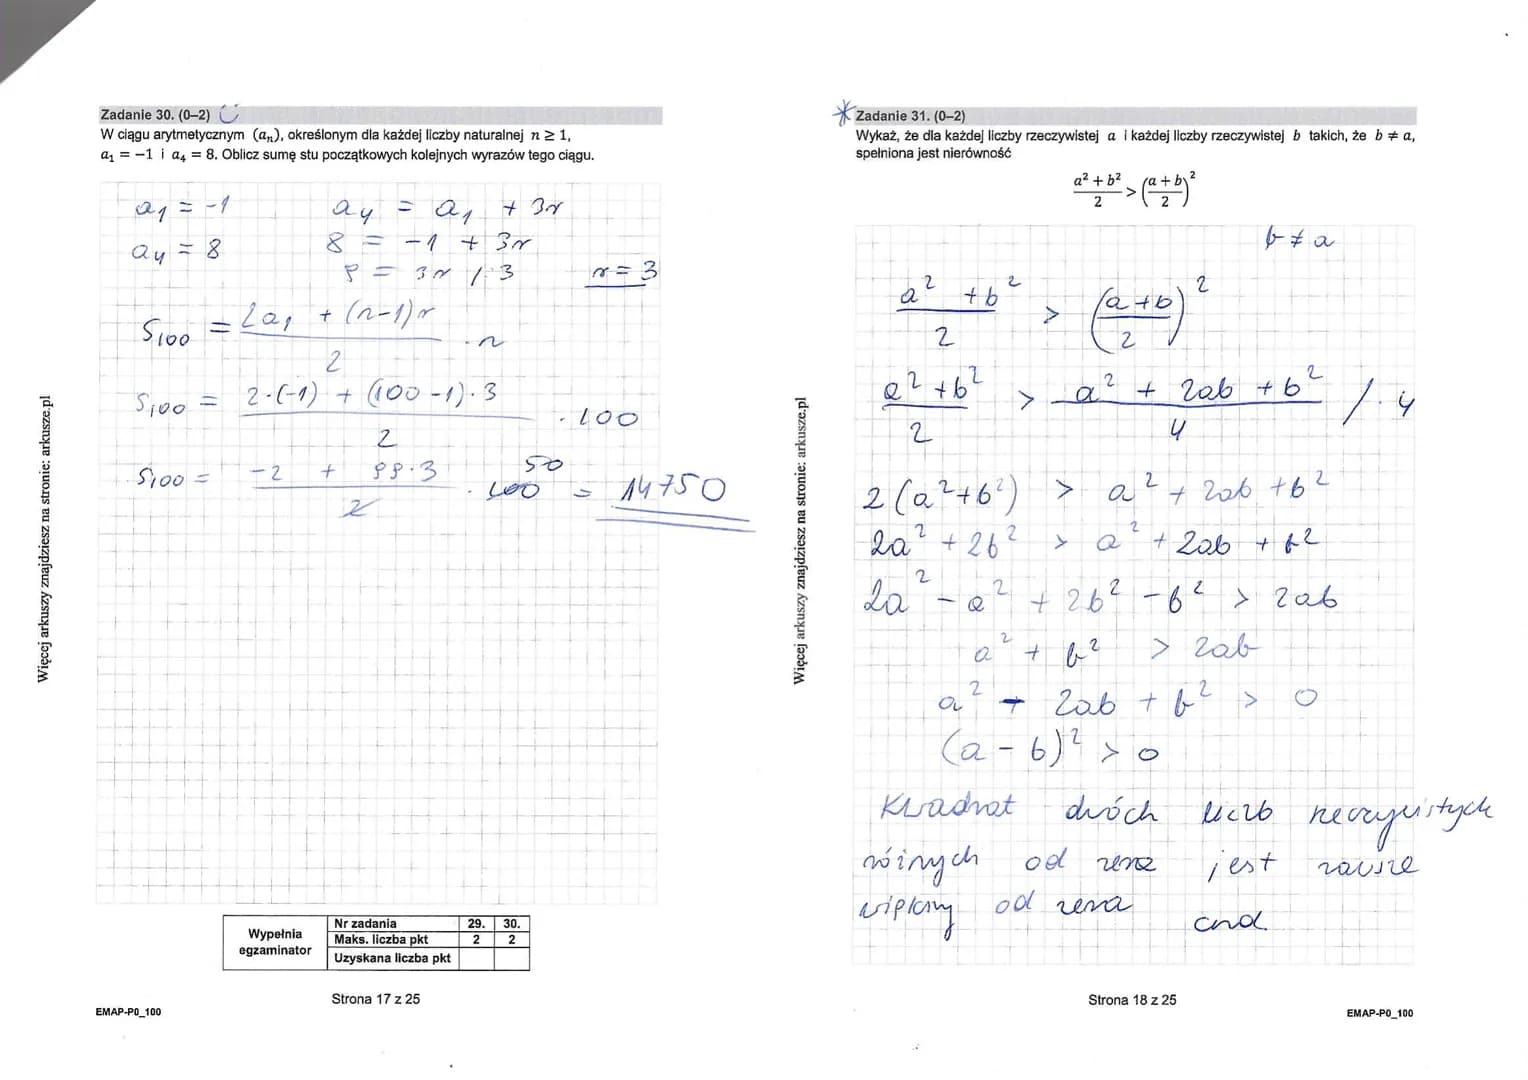 Zadanie 30. (0–2)
W ciągu arytmetycznym (aₙ), określonym dla każdej liczby naturalnej n ≥ 1,
a₁ = −1 i a₄ = 8. Oblicz sumę stu początkowych kolejnych wyrazów tego ciągu.
a₁ = -1
a₄ = 8
a₄ = a₁ + 3r
8 = -1 + 3r
9 = 3r /:3
r = 3
S₁₀₀ = (2a₁ + (n-1)r)/2 · n
S₁₀₀ = (2·(-1) + (100-1)·3)/2 · 100
S₁₀₀ = (-2 + 99·3)/2 · 100 50 = 14750
Wypełnia egzaminator
Nr zadania 29. 30.
Maks. liczba pkt 2 2
Uzyskana liczba pkt
Strona 17 z 25
EMAP-P0_100
Więcej arkuszy znajdziesz na stronie: arkusze.pl
Zadanie 31. (0–2)
Wykaż, że dla każdej liczby rzeczywistej a i każdej liczby rzeczywistej b takich, że b ≠ a,
spełniona jest nierówność
(a² + b²)/2 > ((a + b)/2)²
b ≠ a
(a² + b²)/2 > ((a+b)/2)²
(a² + b²)/2 > (a² + 2ab + b²)/4 /·4
2(a²+b²) > a² + 2ab + b²
2a² + 2b² > a² + 2ab + b²
2a² - a² + 2b² - b² > 2ab
a² + b² > 2ab
a² - 2ab + b² > 0
(a - b)² > 0
Kwadrat dwóch liczb rzeczywistych
różnych od zera jest zawsze
większy od zera
cnd.
Strona 18 z 25
EMAP-P0_100
Więcej arkuszy znajdziesz na stronie: arkusze.pl